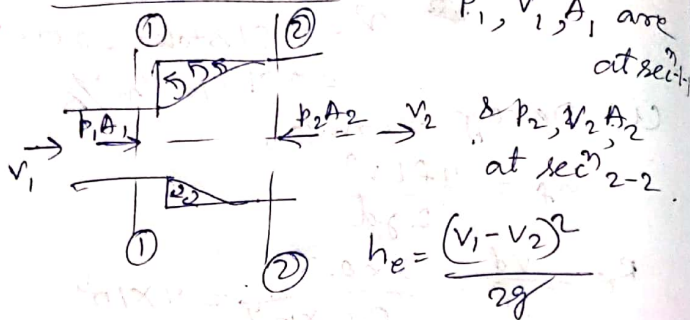 ① ②
P₁, V₁, A₁ are
at secⁿ 1-1
P₁A₁ P₂A₂ V₂ & P₂, V₂ A₂
V₁ at secⁿ 2-2.
① ②
hₑ = (V₁ - V₂)²
2g